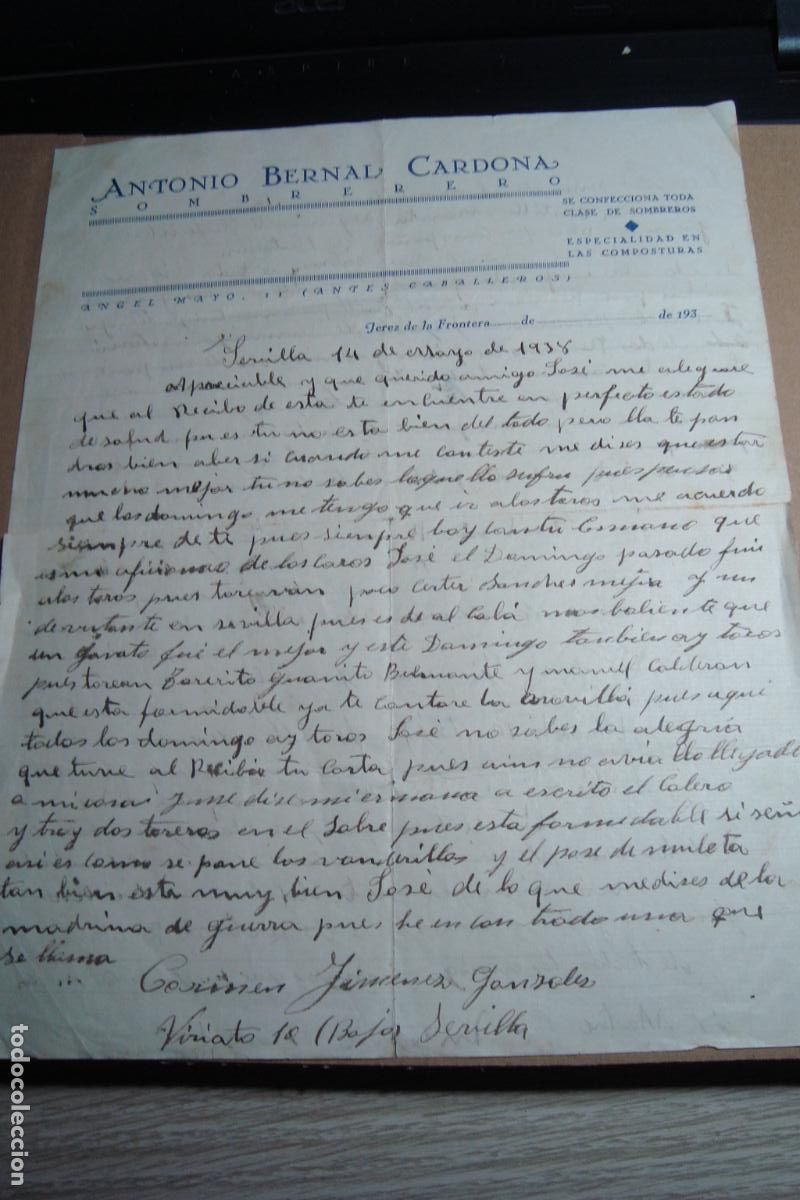 ASPIRE
ANTONIO BERNAL CARDONA
SOMBRERERO
SE CONFECCIONA TODA
CLASE DE SOMBREROS
ESPECIALIDAD EN
LAS COMPOSTURAS
ANGEL MAYO, 11 (ANTES CABALLEROS)
Jerez de la Frontera de de 193
Sevilla 14 de Mayo de 1938
Apreciable y que querido amigo José me alegrare
que al Recibo de esta te encuentre en perfecto estado
de salud pues tu no esta bien del todo pero lla te pon
dras bien aber si cuando me conteste me dises que estar
mucho mejor tu no sabes lo que llo sufro pues pensar
que los domingo me tengo que ir a los toros me acuerdo
siempre de ti pues siempre boy con tu ermano que
es mi aficionao de los caros José el Domingo pasado fui
a los toros pues torearan Sanches mejia y un
devutante en sevilla pues es de alcalá mas baliente que
un javato fué el mejor y este Domingo tanbien ay toros
pues torean Torerito Guanito Belmonte y manuel Calderon
que esta formidable ya te contare la maravilla pues aqui
todos los domingo ay toros José no sabes la alegria
que tuve al Recibir tu carta pues aun no avia llo llegado
a mi casa y me dise mi ermana a escrito el Calero
y tray dos toreros en el sobre pues esta formidable si señ
asi es como se pone los vanderillas y el pase de muleta
tan bien esta muy bien José de lo que me dises de la
madrina de guerra pues he encontrado una que
se llama
Carmen Jimenez Gonzalez
Viriato 10 (Bajo) Sevilla
todocoleccion